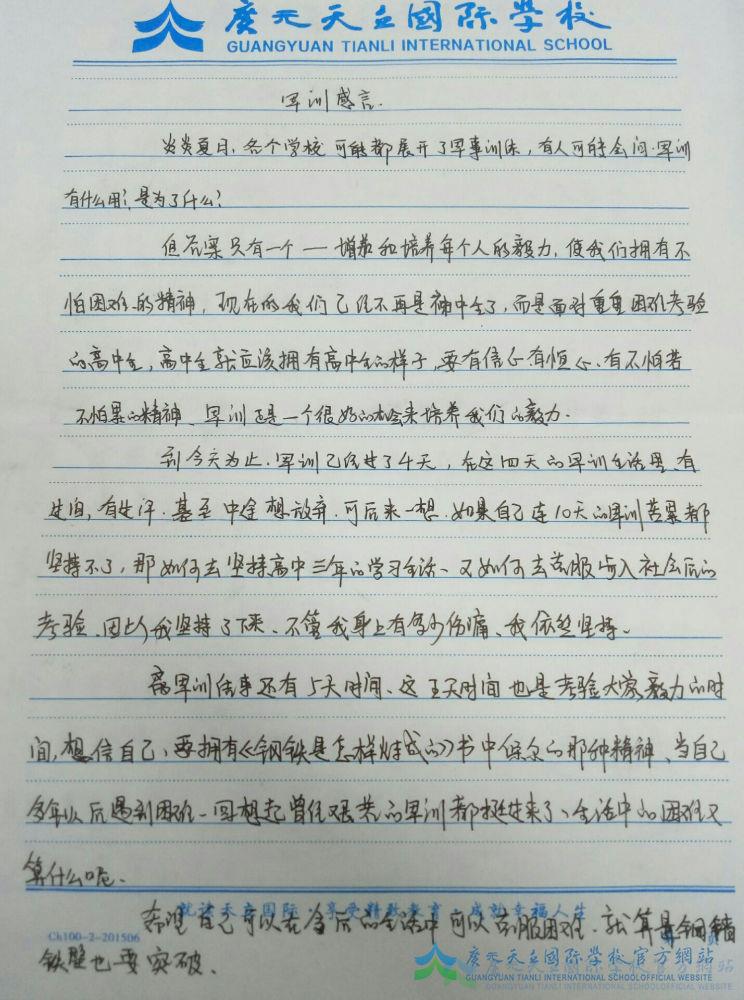 广元天立國际學校
GUANGYUAN TIANLI INTERNATIONAL SCHOOL
军训感言.
炎炎夏日,各个学校可能都展开了军事训练,有人可能会问.军训
有什么用?是为了什么?
但答案只有一个——增加和培养每个人的毅力,使我们拥有不
怕困难的精神,现在的我们已经不再是初中生了,而是面对重重困难考验
的高中生,高中生就应该拥有高中生的样子,要有信心有恒心、有不怕苦
不怕累的精神、军训正是一个很好的机会来培养我们的毅力.
到今天为止.军训已经过了4天,在这四天的军训生活里、有
过泪,有过汗.甚至中途想放弃.可后来一想.如果自己连10天的军训苦累都
坚持不了,那如何去坚持高中三年的学习生活、又如何去克服步入社会后的
考验.因此我坚持了下来、不管我身上有多少伤痛、我依然坚持。
离军训结束还有5天时间、这五天时间也是考验大家毅力的时
间,想信自己、要拥有《钢铁是怎样炼成的》书中保尔的那种精神、当自己
多年以后遇到困难、回想起曾经艰苦的军训都挺过来了、生活中的困难又
算什么呢.
就读天立国际·享受精致教育·成就幸福人生
希望自己可以在今后的生活中可以克服困难.就算是铜墙
Ch100-2-201506
铁壁也要突破、
廣元天立國際學校官方網站
GUANGYUAN TIANLI INTERNATIONAL SCHOOLOFFICIAL WEBSITE